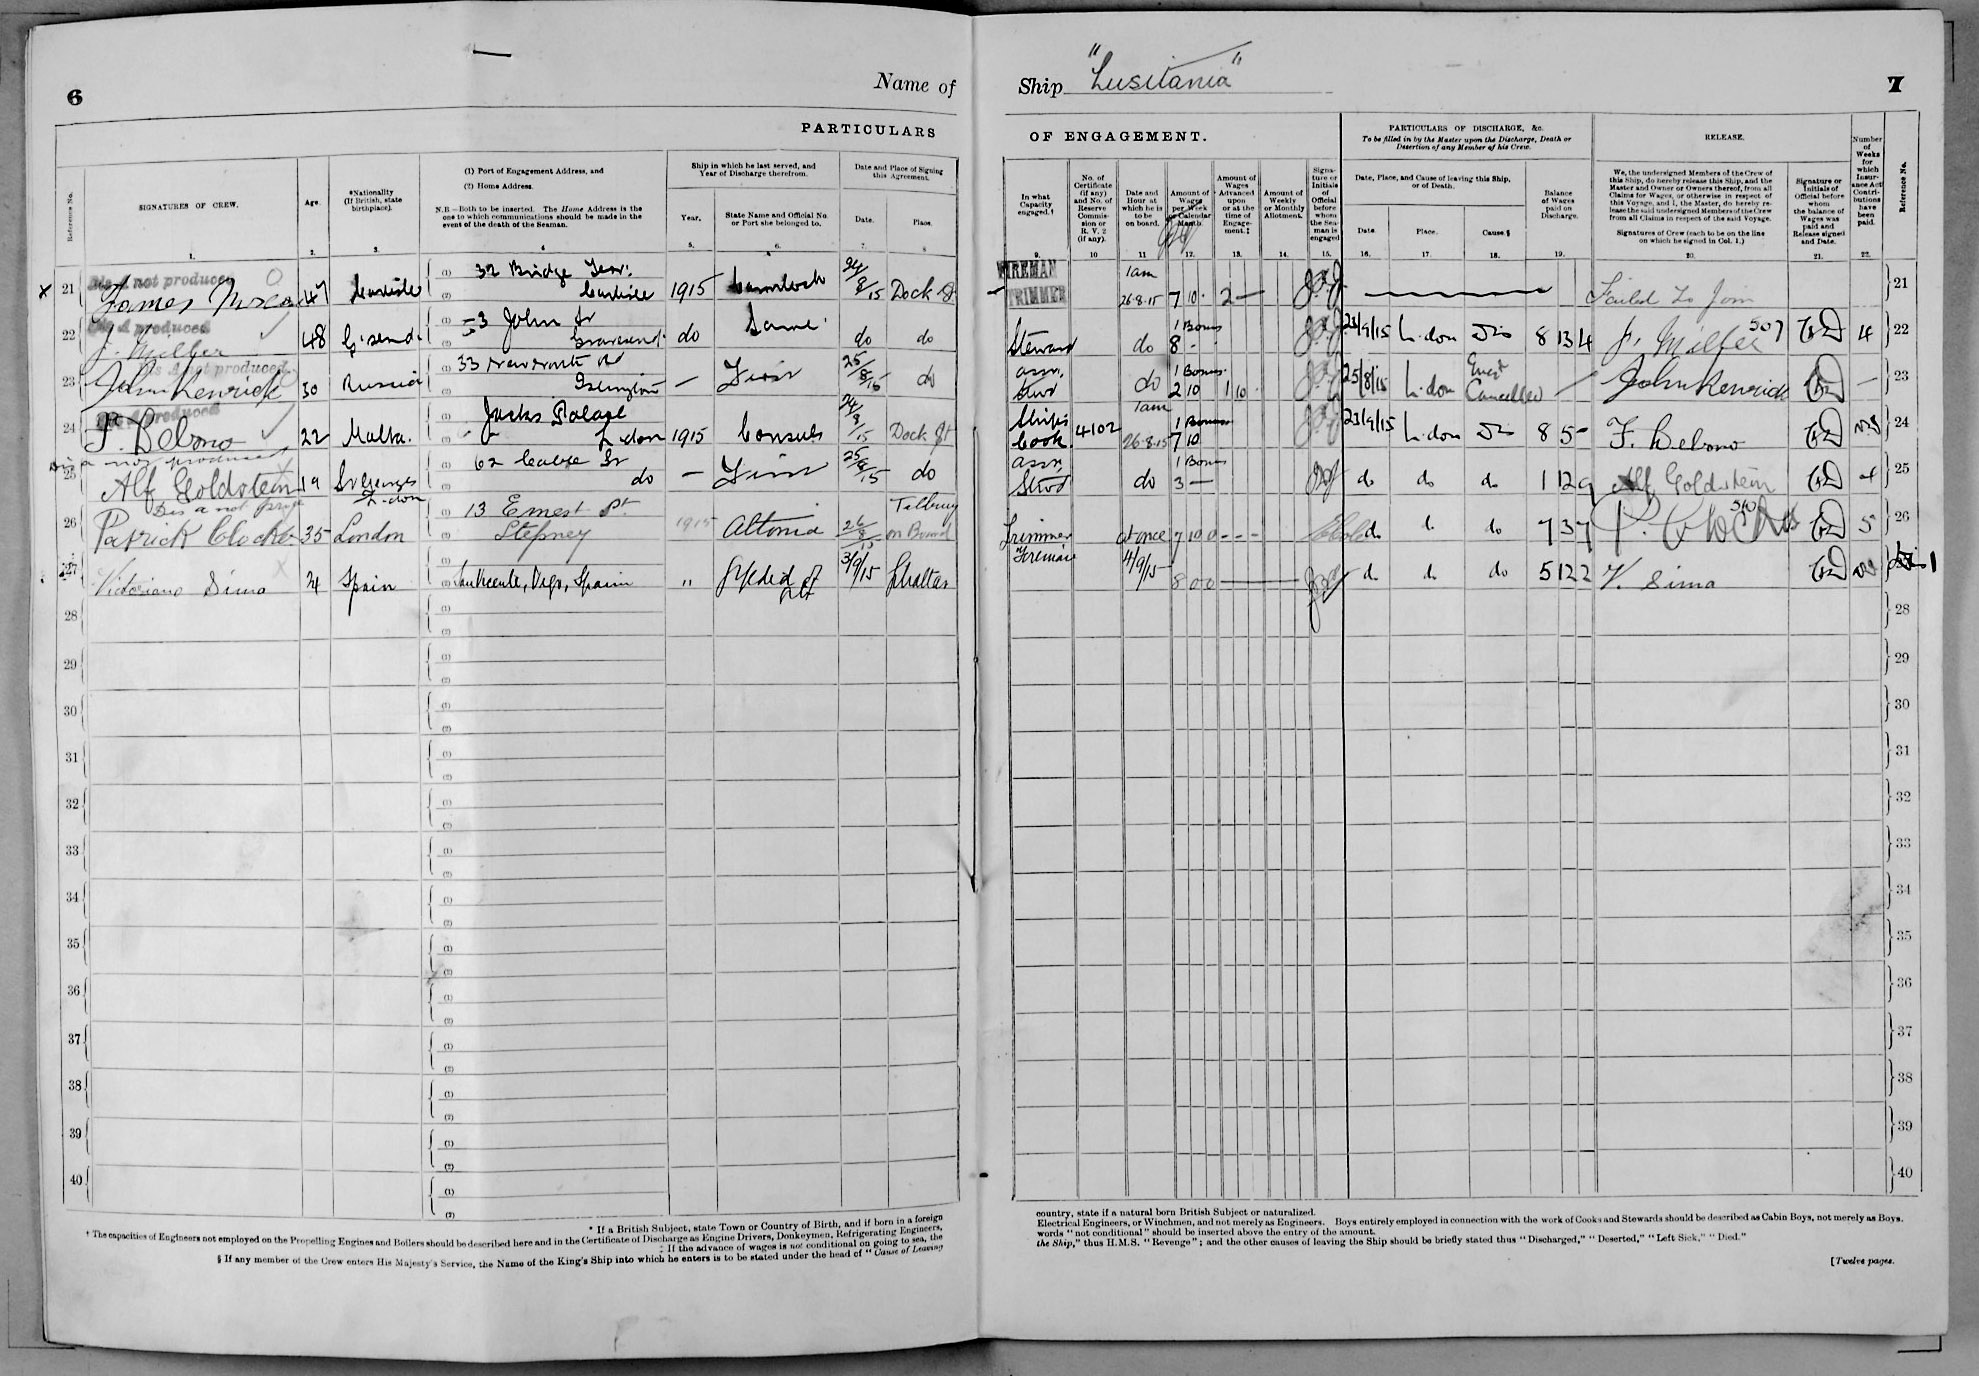 6
Name of
Ship "Lusitania"
7
PARTICULARS
OF ENGAGEMENT.
Reference No.
SIGNATURES OF CREW.
1.
Age.
2.
*Nationality
(If British, state
birthplace).
3.
(1) Port of Engagement Address, and
(2) Home Address.
N.B.—Both to be inserted. The Home Address is the
one to which communications should be made in the
event of the death of the Seaman.
4
Ship in which he last served, and
Year of Discharge therefrom.
Year.
5.
State Name and Official No.
or Port she belonged to.
6.
Date and Place of Signing
this Agreement.
Date.
7.
Place.
8
In what
Capacity
engaged.†
9.
No. of
Certificate
(if any)
and No. of
Reserve
Commis-
sion or
R. V. 2
(if any).
10
Date and
Hour at
which he is
to be
on board.
11
Amount of
Wages
per Week
or Calendar
Month.
12.
Amount of
Wages
Advanced
upon
or at the
time of
Engage-
ment.‡
13.
Amount of
Weekly
or Monthly
Allotment.
14.
Signa-
ture or
Initials
of
Official
before
whom
the Sea-
man is
engaged
15.
PARTICULARS OF DISCHARGE, &c.
To be filled in by the Master upon the Discharge, Death or
Desertion of any Member of his Crew.
Date, Place, and Cause of leaving this Ship,
or of Death.
Date.
16.
Place.
17.
Cause.§
18.
Balance
of Wages
paid on
Discharge.
19.
RELEASE.
We, the undersigned Members of the Crew of
this Ship, do hereby release this Ship, and the
Master and Owner or Owners thereof, from all
Claims for Wages, or otherwise in respect of
this Voyage, and I, the Master, do hereby re-
lease the said undersigned Members of the Crew
from all Claims in respect of the said Voyage.
Signatures of Crew (each to be on the line
on which he signed in Col. 1.)
20.
Signature or
Initials of
Official before
whom
the balance of
Wages was
paid and
Release signed
and Date.
21.
Number
of
Weeks
for
which
Insur-
ance Act
Contri-
butions
have
been
paid.
22.
Reference No.
x 21 Dis A not produced James 47 Carlisle (1) 32 Bridge Terr. (2) Carlisle 1915 24/8/15 Dock St
FIREMAN TRIMMER 1am 26.8.15 7 10 2 — Failed to Join 21
22 produced J. Miller 48 G'send. (1) 53 John St (2) Gravesend. do Same do do
Steward do 1 Bonus 8 - - 23/9/15 L.don Dis 8 13 4 J. Miller 507 4 22
23 not produced John Kenrick 30 Russia 33 Islington — First 25/8/15 do
Asst. Stwd do 1 Bonus 2 10 1 10 25/8/15 L.don Engt Cancelled John Kenrick — 23
24 produced F. Delono 22 Malta. Jacks Palace L.don 1915 Consuls 24/8/15 Dock St
Ship's Cook 4102 1am 26.8.15 1 Bonus 7 10 23/9/15 L.don Dis 8 5 - F. Delono 24
25 Dis A not produced Alf Goldstein 19 St Georges L.don 62 Cable St do — First 25/8/15 do
Asst. Stwd do 1 Bonus 3 — do do do 1 12 9 Alf Goldstein 4 25
26 Dis A not Patrick Clocke 35 London 13 Ernest St. Stepney 1915 Altonia 26/8/15 Tilbury on Board
Trimmer at once 7 10 0 - - - do do do 7 3 7 P. Clocke 510 5 26
27 Victoriano Sima 24 Spain Vigo, Spain " 3/9/15 Gibraltar
Fireman 4/9/15 8 0 0 do do do 5 12 2 V. Sima 1
28 (1) (2) 28
29 (1) (2) 29
30 (1) (2) 30
31 (1) (2) 31
32 (1) (2) 32
33 (1) (2) 33
34 (1) (2) 34
35 (1) (2) 35
36 (1) (2) 36
37 (1) (2) 37
38 (1) (2) 38
39 (1) (2) 39
40 (1) (2) 40
* If a British Subject, state Town or Country of Birth, and if born in a foreign
country, state if a natural born British Subject or naturalized.
† The capacities of Engineers not employed on the Propelling Engines and Boilers should be described here and in the Certificate of Discharge as Engine Drivers, Donkeymen, Refrigerating Engineers,
Electrical Engineers, or Winchmen, and not merely as Engineers. Boys entirely employed in connection with the work of Cooks and Stewards should be described as Cabin Boys, not merely as Boys.
‡ If the advance of wages is not conditional on going to sea, the
words "not conditional" should be inserted above the entry of the amount.
§ If any member of the Crew enters His Majesty's Service, the Name of the King's Ship into which he enters is to be stated under the head of "Cause of Leaving
the Ship," thus H.M.S. "Revenge"; and the other causes of leaving the Ship should be briefly stated thus "Discharged," "Deserted," "Left Sick," "Died."
[Twelve pages.